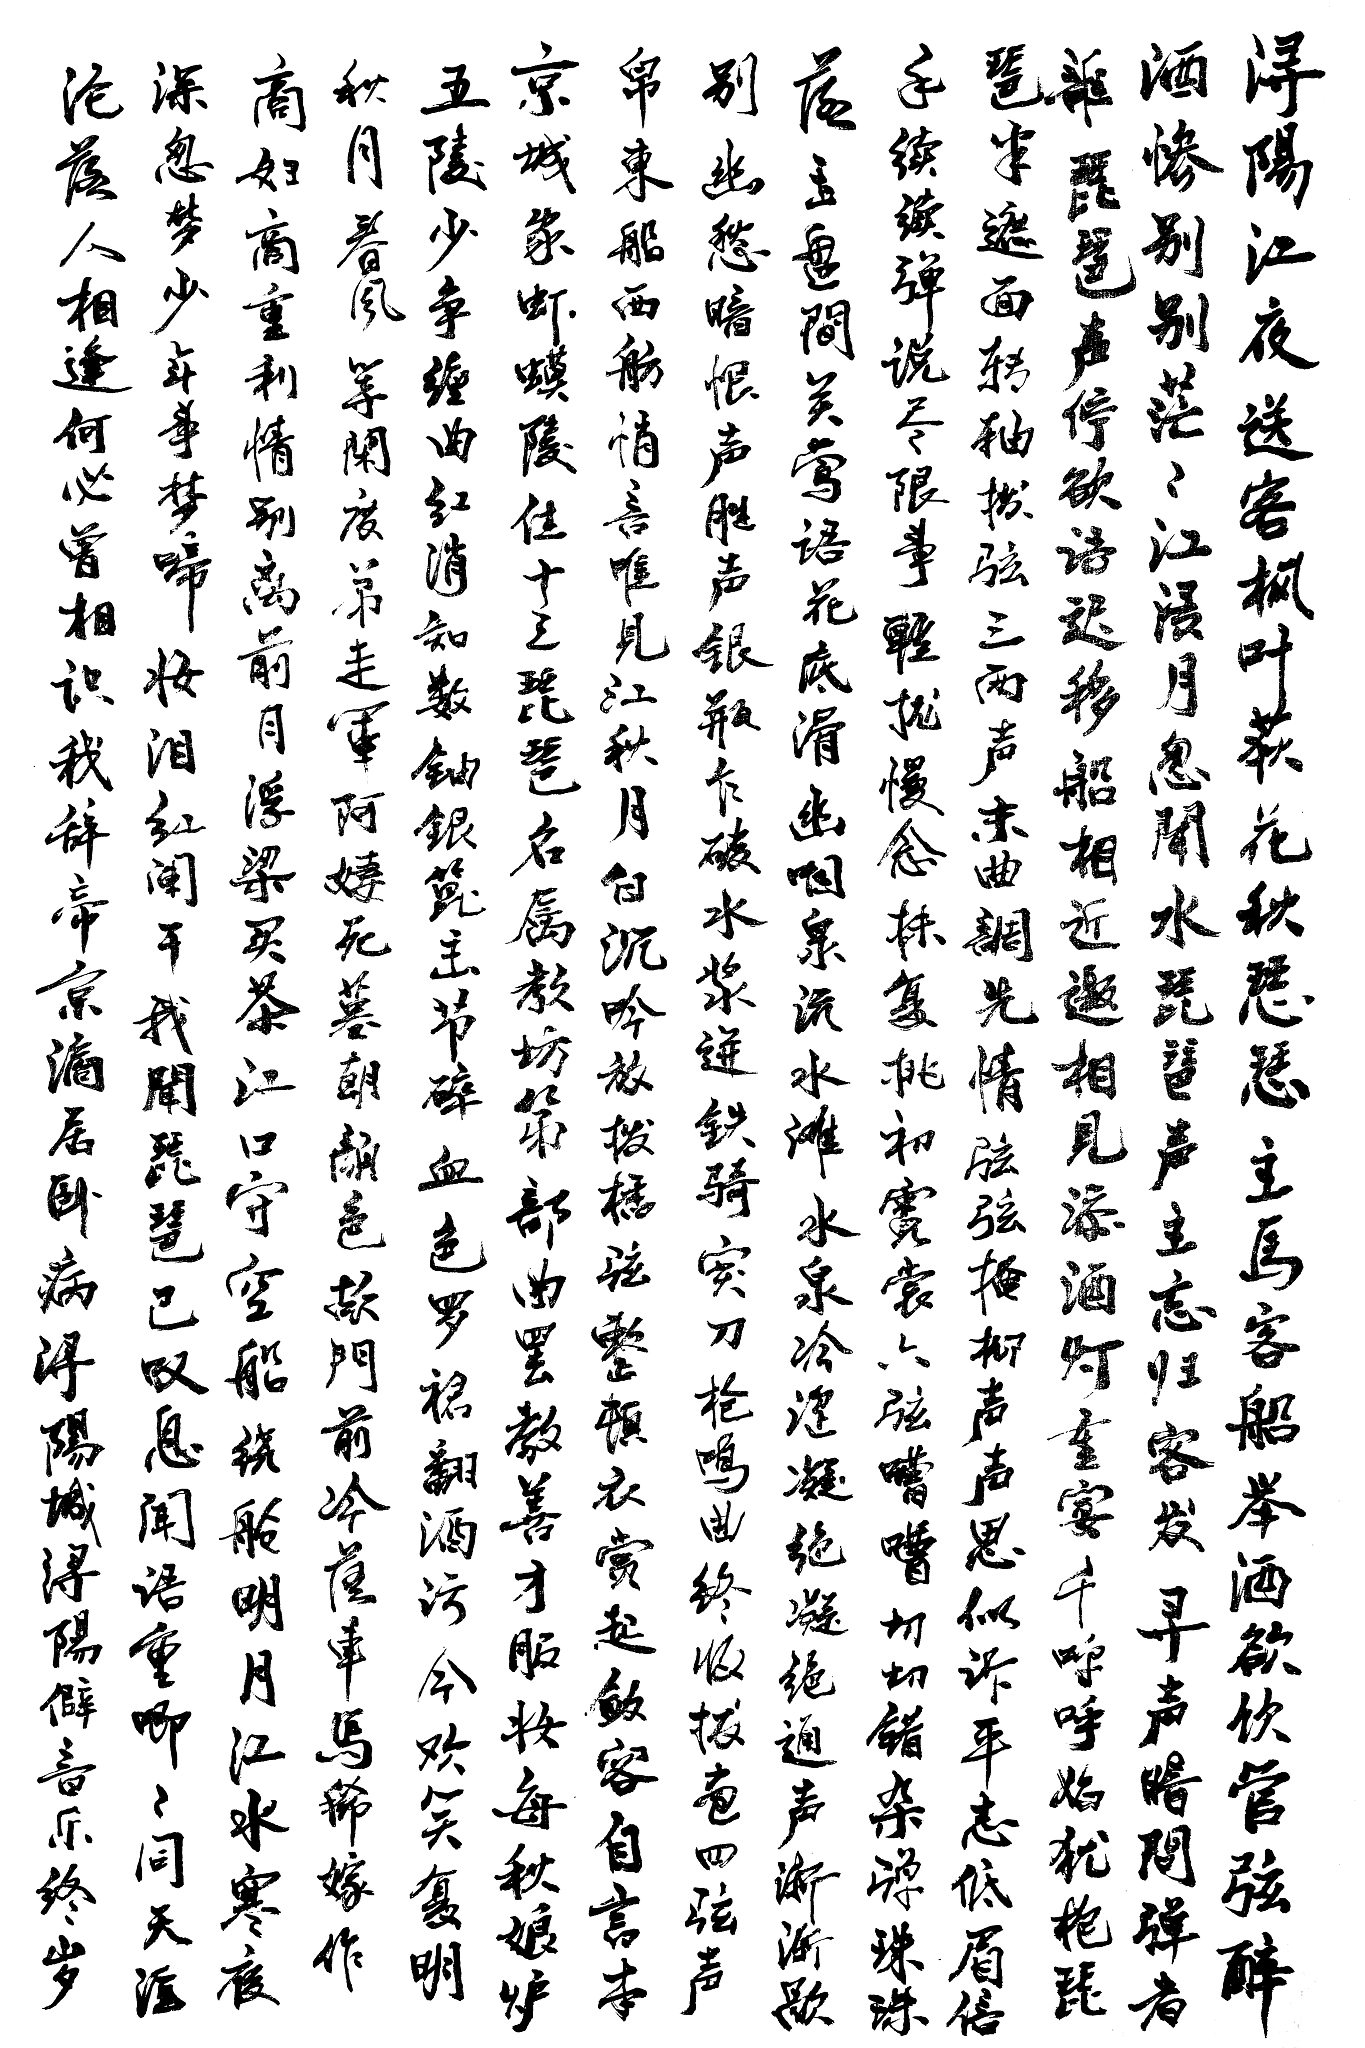 浔陽江夜送客枫叶荻花秋瑟瑟主馬客船举酒欲饮管弦醉
酒惨别别茫〻江浸月忽聞水琵琶声主忘归客发寻声暗問弹者
誰琵琶声停欲语迟移船相近邀相見添酒灯重宴千呼呼始犹抱琵
琶半遮面转轴拨弦三两声未曲調先情弦弦掩抑声声思似诉平志低眉信
手续续弹说尽限事輕拢慢念抹复挑初霓裳六弦嘈嘈切切错杂弹珠珠
落玉盘間关莺语花底滑幽咽泉流水滩水泉冷涩凝绝凝绝通声渐渐歇
别幽愁暗恨声胜声银瓶乍破水浆迸鉄骑突刀枪鳴曲终收拨画四弦声
帛東船西舫悄言唯見江秋月白沉吟放拨插弦整顿衣裳起敛容自言本
京城家虾蟆陵住十三琵琶名属教坊第部曲罢教善才服妆每秋娘妒
五陵少争缠曲红消知数鈿銀篦击节碎血色罗裙翻酒污今欢笑复明
秋月春风等闲度弟走軍阿姨死暮朝颜色故門前冷落車馬稀嫁作
商妇商重利情别离前月浮梁买茶江口守空船绕船明月江水寒夜
深忽梦少年事梦啼妆泪红闌干我聞琵琶已叹息闻语重唧〻同天涯
沦落人相逢何必曾相识我辞帝京謫居卧病浔陽城浔陽僻音乐终岁